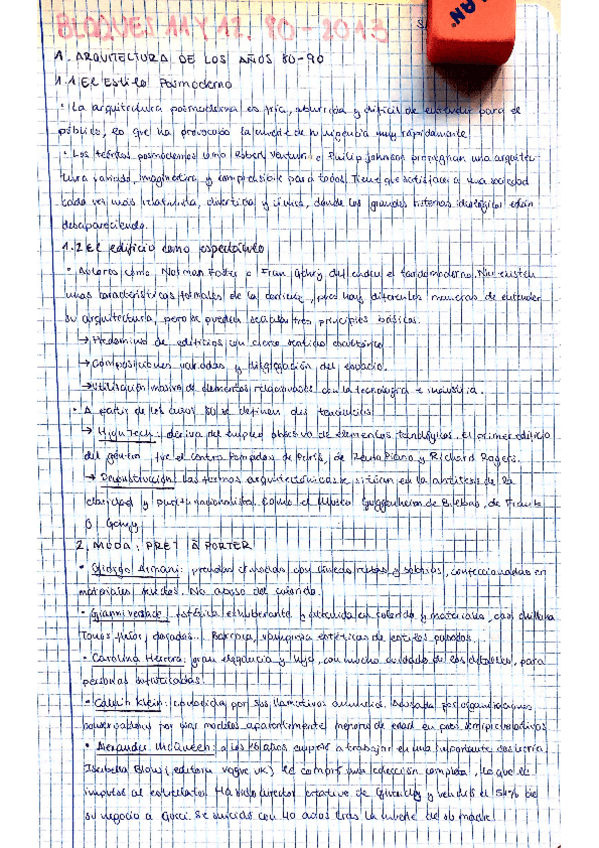 BLOQUES 11 Y 12. 80-2013
1. ARQUITECTURA DE LOS AÑOS 80-90
1.1 El Estilo Posmoderno
· La arquitectura posmoderna es fría, aburrida y difícil de entender para el
público, lo que ha provocado la muerte de su vigencia muy rápidamente.
· Los teóricos posmodernos como Robert Venturi o Philip Johnson propugnan una arquitec
tura variada, imaginativa y comprensible para todos. Tiene que satisfacer a una sociedad
cada vez más relativista, divertida y cínica, donde los grandes sistemas ideológicos están
desapareciendo.
1.2 El edificio como espectáculo
· Autores como Norman Foster o Fran Gehry defienden el tardomoderno. No existen
unas características formales de la corriente, pues hay diferentes maneras de entender
su arquitectura, pero se pueden señalar tres principios básicos.
→ Predominio de edificios con claro sentido escultórico
→ Composiciones variadas y disgregación del espacio.
→ Utilización masiva de elementos relacionados con la tecnología e industria.
· A partir de los años 80 se definen dos tendencias
→ High Tech: deriva del empleo objetivo de elementos tecnológicos. El primer edificio
del género fue el centro Pompidou de París, de Renzo Piano y Richard Rogers.
→ Deconstrucción: Las formas arquitectónicas se sitúan en la antítesis de la
claridad y pureza racionalista, como el Museo Guggenheim de Bilbao, de Frank
O Gehry
2. MODA: PRET À PORTER
· Giorgio Armani: prendas de vestido con líneas rectas y sobrias, confeccionadas en
materiales fluidos. No abuso del colorido.
· Gianni Versace: estética exuberante y atrevida en colorido y materiales, casi chillona
Tonos flúor, dorados. Barroca, vanguardia estéticas de estilos pasados.
· Carolina Herrera: gran elegancia y lujo, con mucho cuidado de los detalles, para
personas sofisticadas.
· Calvin Klein: conocida por sus llamativos anuncios. Acusada por organizaciones
conservadoras por usar modelos aparentemente menores de edad en poses semipiculativas
· Alexander McQueen: a los 16 años empezó a trabajar en una importante sastrería.
Isabella Blow (editora vogue UK) le compró una colección completa, lo que le
impulsó al estrellato. Ha sido director creativo de Givenchy y vendió el 51% de
su negocio a Gucci. Se suicidó con 40 años tras la muerte de su madre.